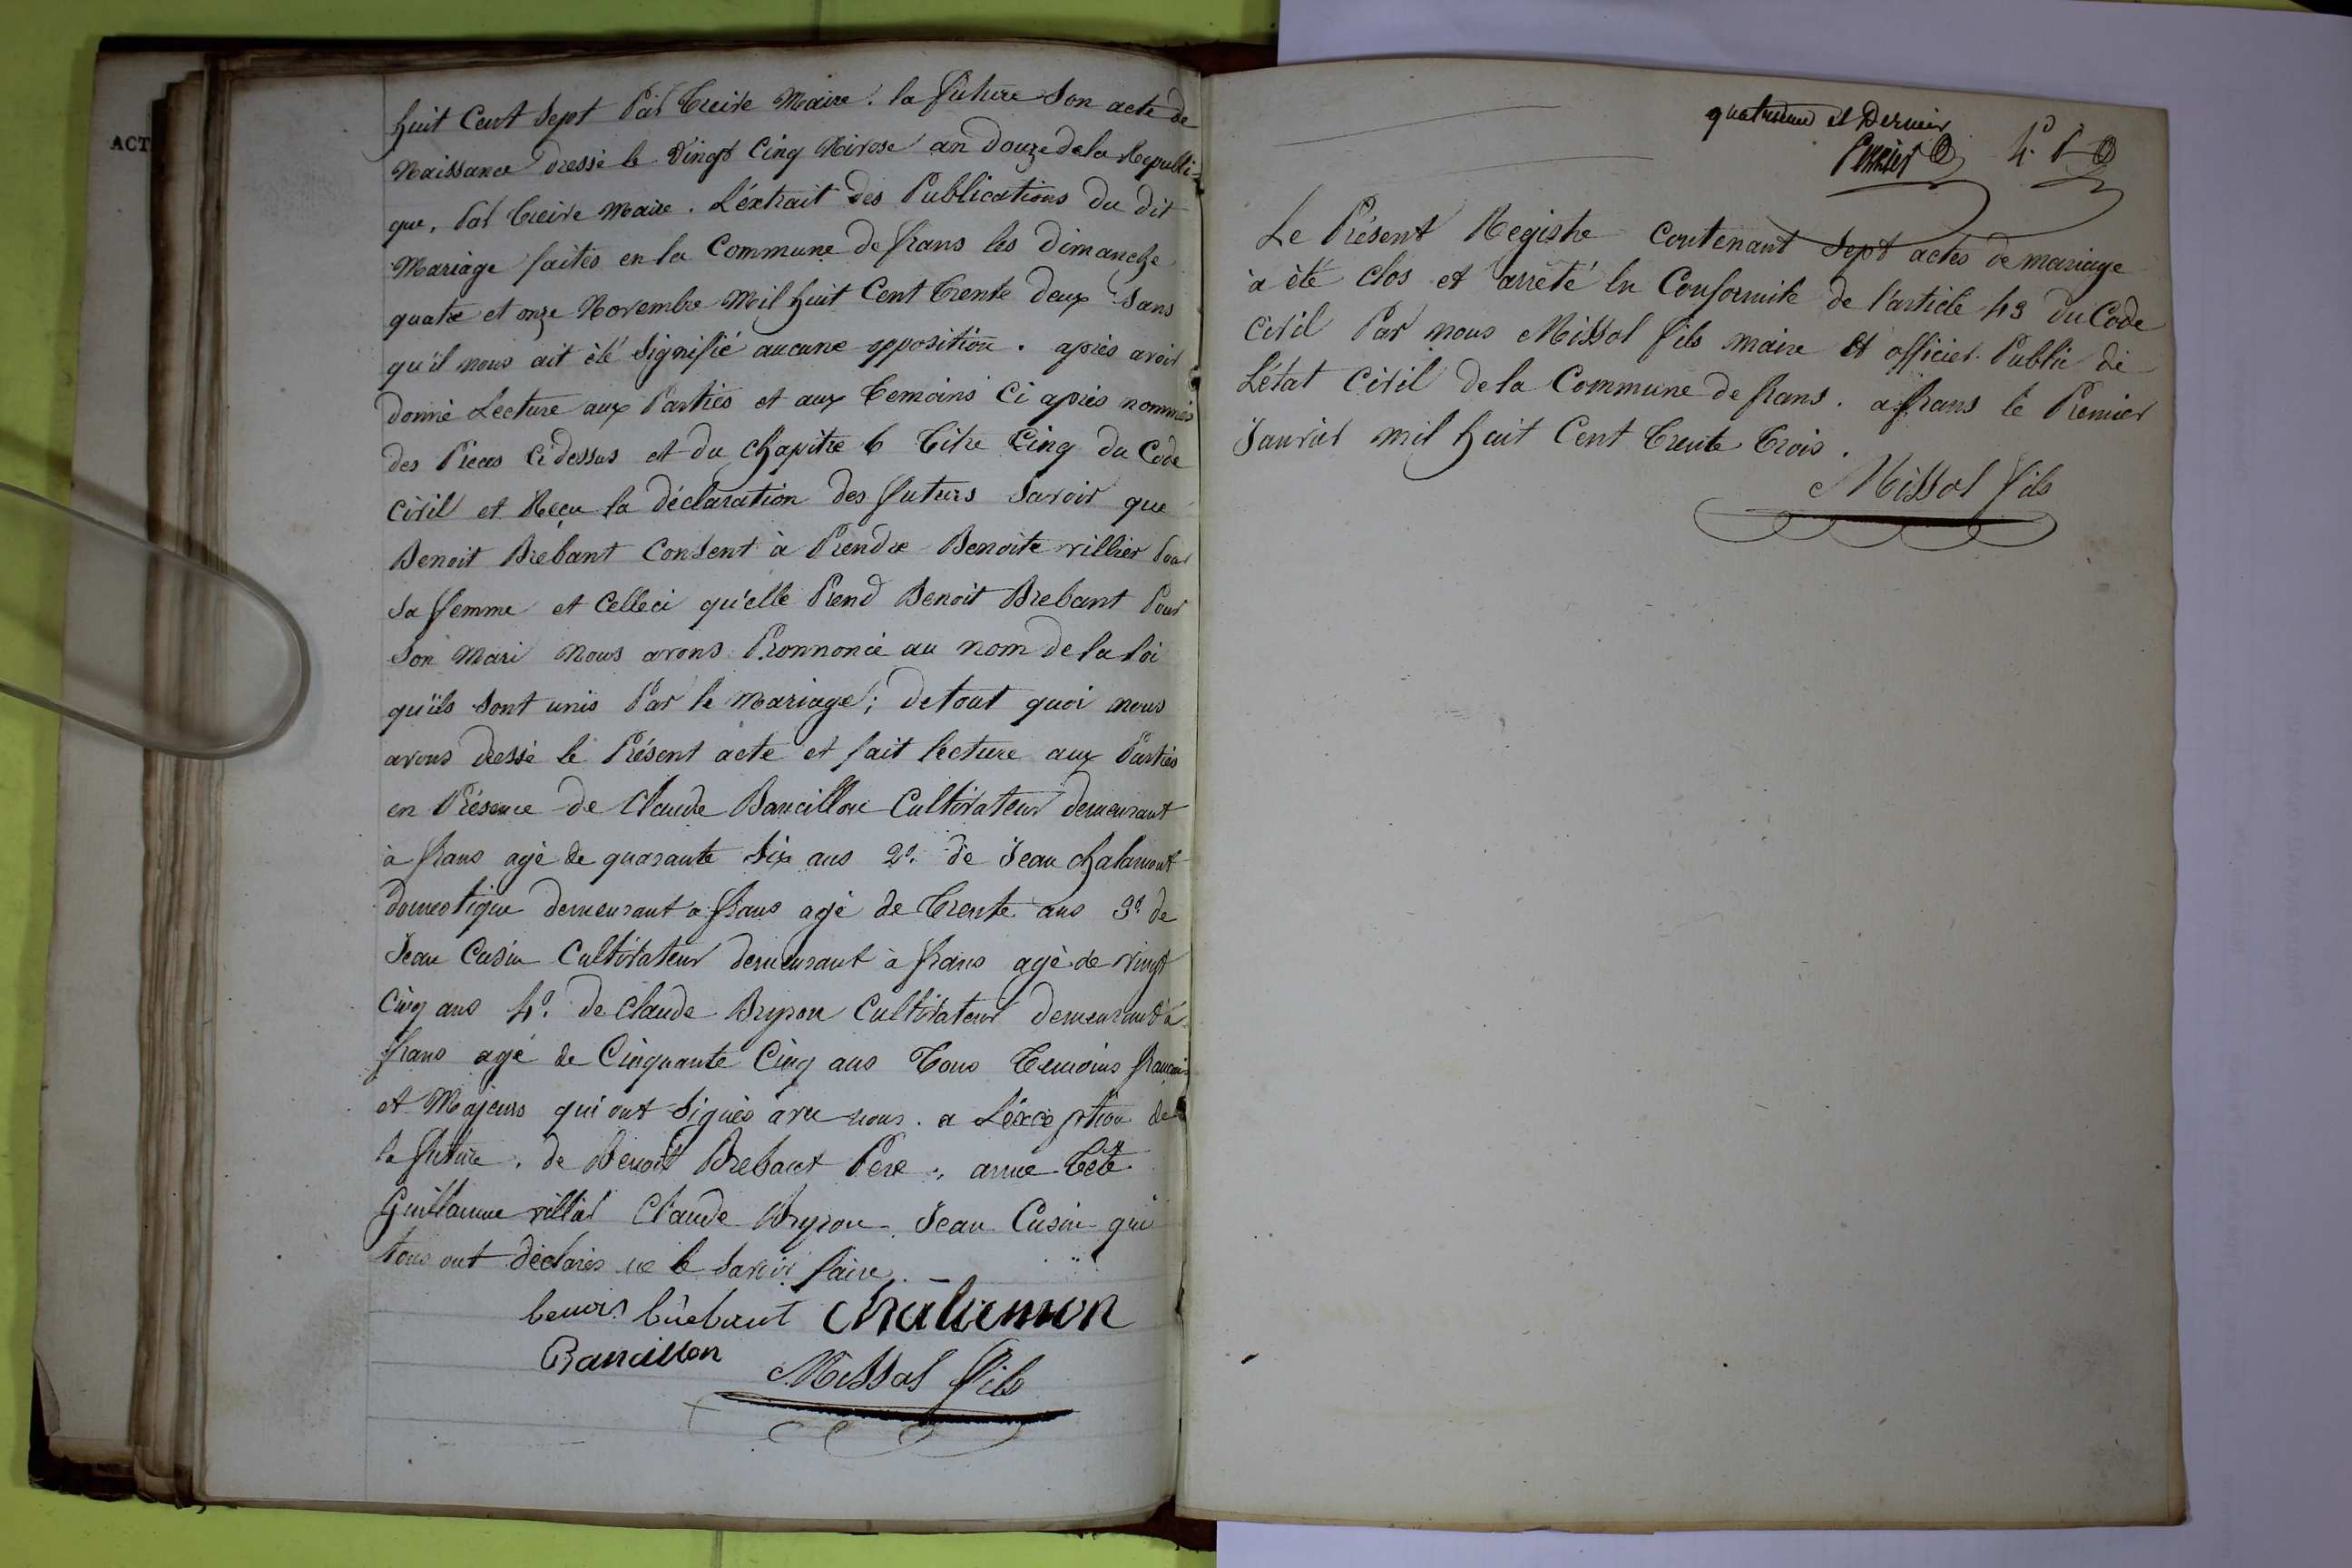 ACT
huit Cent Sept Par Creire Maire. la future Son acte de
Naissance dressé le Vingt Cinq Nivose an douze de la Republi-
que, Par Creire maire. L'éxtrait des Publications du dit
Mariage faites en la Commune de frans les dimanche
quatre et onze Novembre Mil huit Cent Trente deux Sans
qu'il nous ait été Signifié aucune opposition. après avoir
donné Lecture aux Parties et aux Temoins Ci après nommés
des Pieces Ci dessus et du chapitre 6 Titre Cinq du Code
Civil et Reçu la déclaration des futurs Savoir que
Benoit Brebant Consent à Prendre Benoite villier Pour
Sa femme et Celleci qu'elle Prend Benoit Brebant Pour
Son Mari Nous avons Pronnoncé au nom de la loi
qu'ils Sont unis Par le Mariage; de tout quoi nous
avons dressé le Présent acte et fait lecture aux Parties
en Présence de Claude Bancillon Cultivateur demeurant
à frans agé de quarante Six ans 2° de Jean chalamont
domestique demeurant a frans agé de Trente ans 3° de
Jean Cusin Cultivateur demeurant à frans agé de vingt
Cinq ans 4° de Claude Bryron Cultivateur demeurant à
frans agé de Cinquante Cinq ans Tous Temoins francais
et Majeurs qui ont Signés avec nous. a L'éxception de
la future. de Benoit Brebant Pere, anne
Guillaume villier Claude Bryron Jean Cusin qui
tous ont déclarés ne le Savoir faire.
benoit brebant chalamon
Bancillon Missol fils
quatrieme et Dernier
Perrier 4° P
Le Présent Registre Contenant Sept actes de mariage
à été clos et arrêté en Conformité de l'article 43 du Code
Civil Par nous Missol fils maire et officier Public de
L'état Civil de la Commune de frans. a frans le Premier
Janvier mil huit Cent Trente Trois.
Missol fils